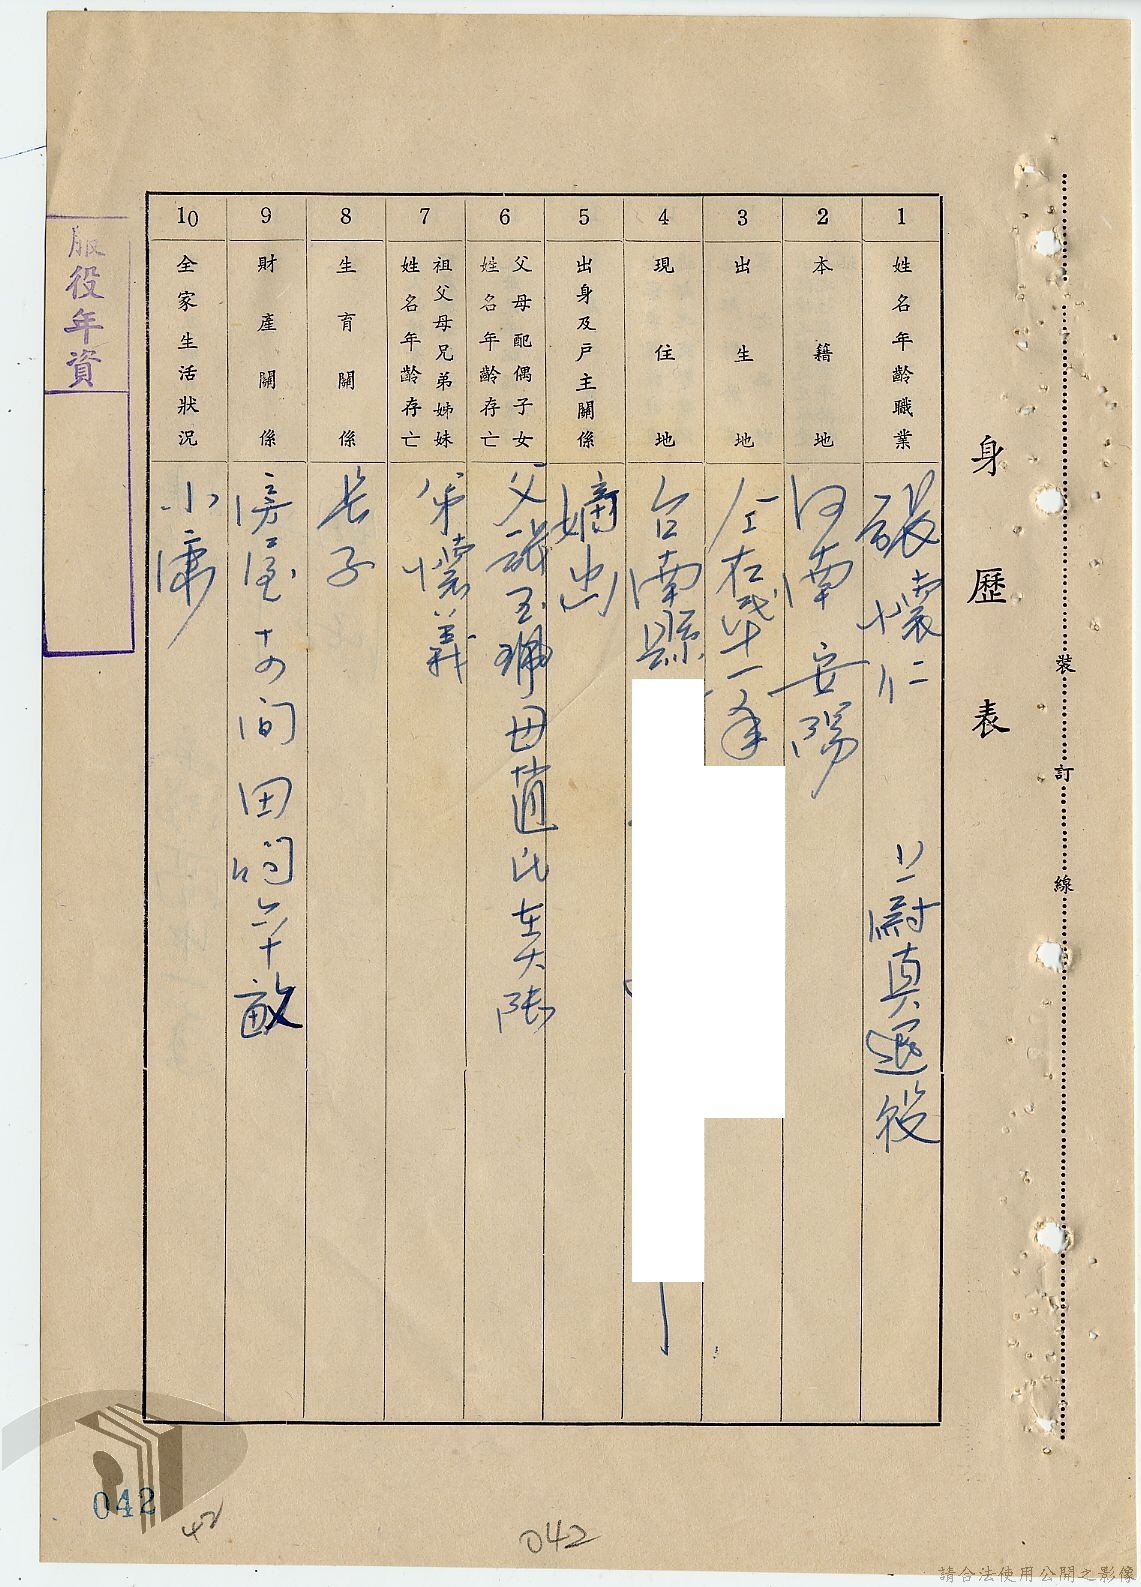 身歷表
1
姓名年齡職業
張懷仁 上尉員退役
2
本籍地
河南安陽
3
出生地
仝右
4
現住地
台南縣
5
出身及戶主關係
嫡出
6
父母配偶子女
姓名年齡存亡
父張玉珮母趙氏在大陸
7
祖父母兄弟姊妹
姓名年齡存亡
弟懷義
8
生育關係
長子
9
財產關係
房屋十四間田 六十畝
10
全家生活狀況
小康
服役年資
裝訂線
042
42
042
請合法使用公開之影像